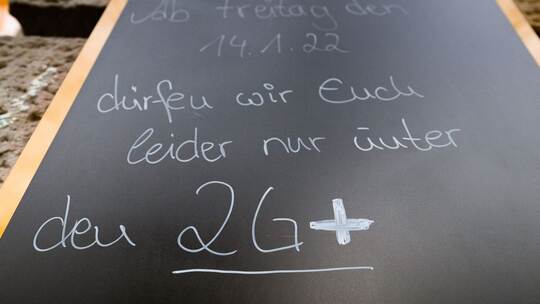 Ab Freitag den
14.1.22
dürfen wir Euch
leider nur unter
den 2G+